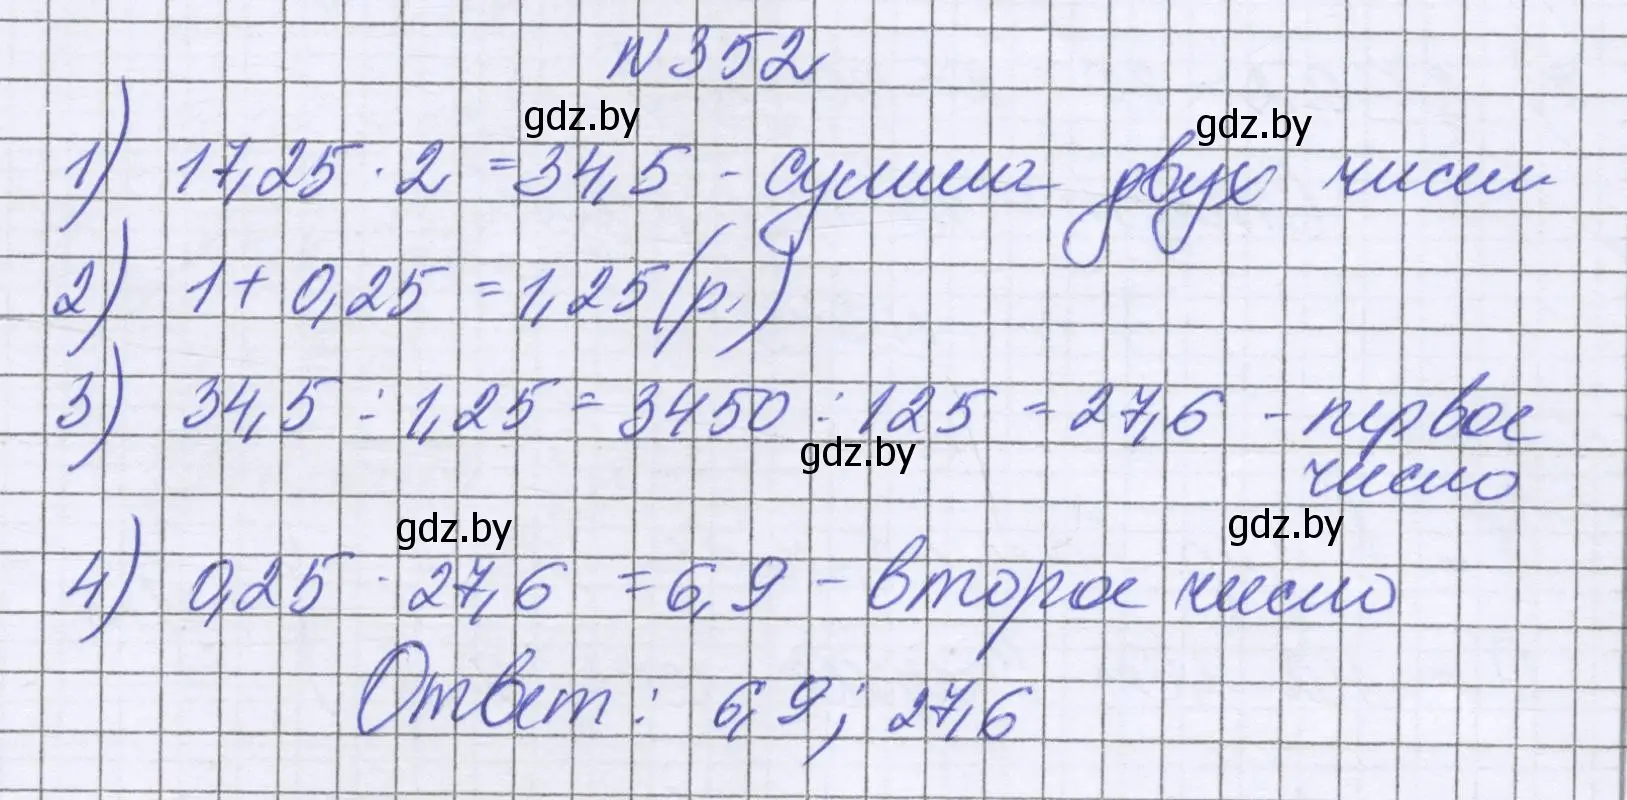 N352
gdz.by
gdz.by
1) 17,25 · 2 = 34,5 - сумма двух чисел
2) 1 + 0,25 = 1,25 (р.)
3) 34,5 : 1,25 = 3450 : 125 = 27,6 - первое
число
gdz.by
gdz.by
gdz.by
4) 0,25 · 27,6 = 6,9 - второе число
Ответ: 6,9; 27,6